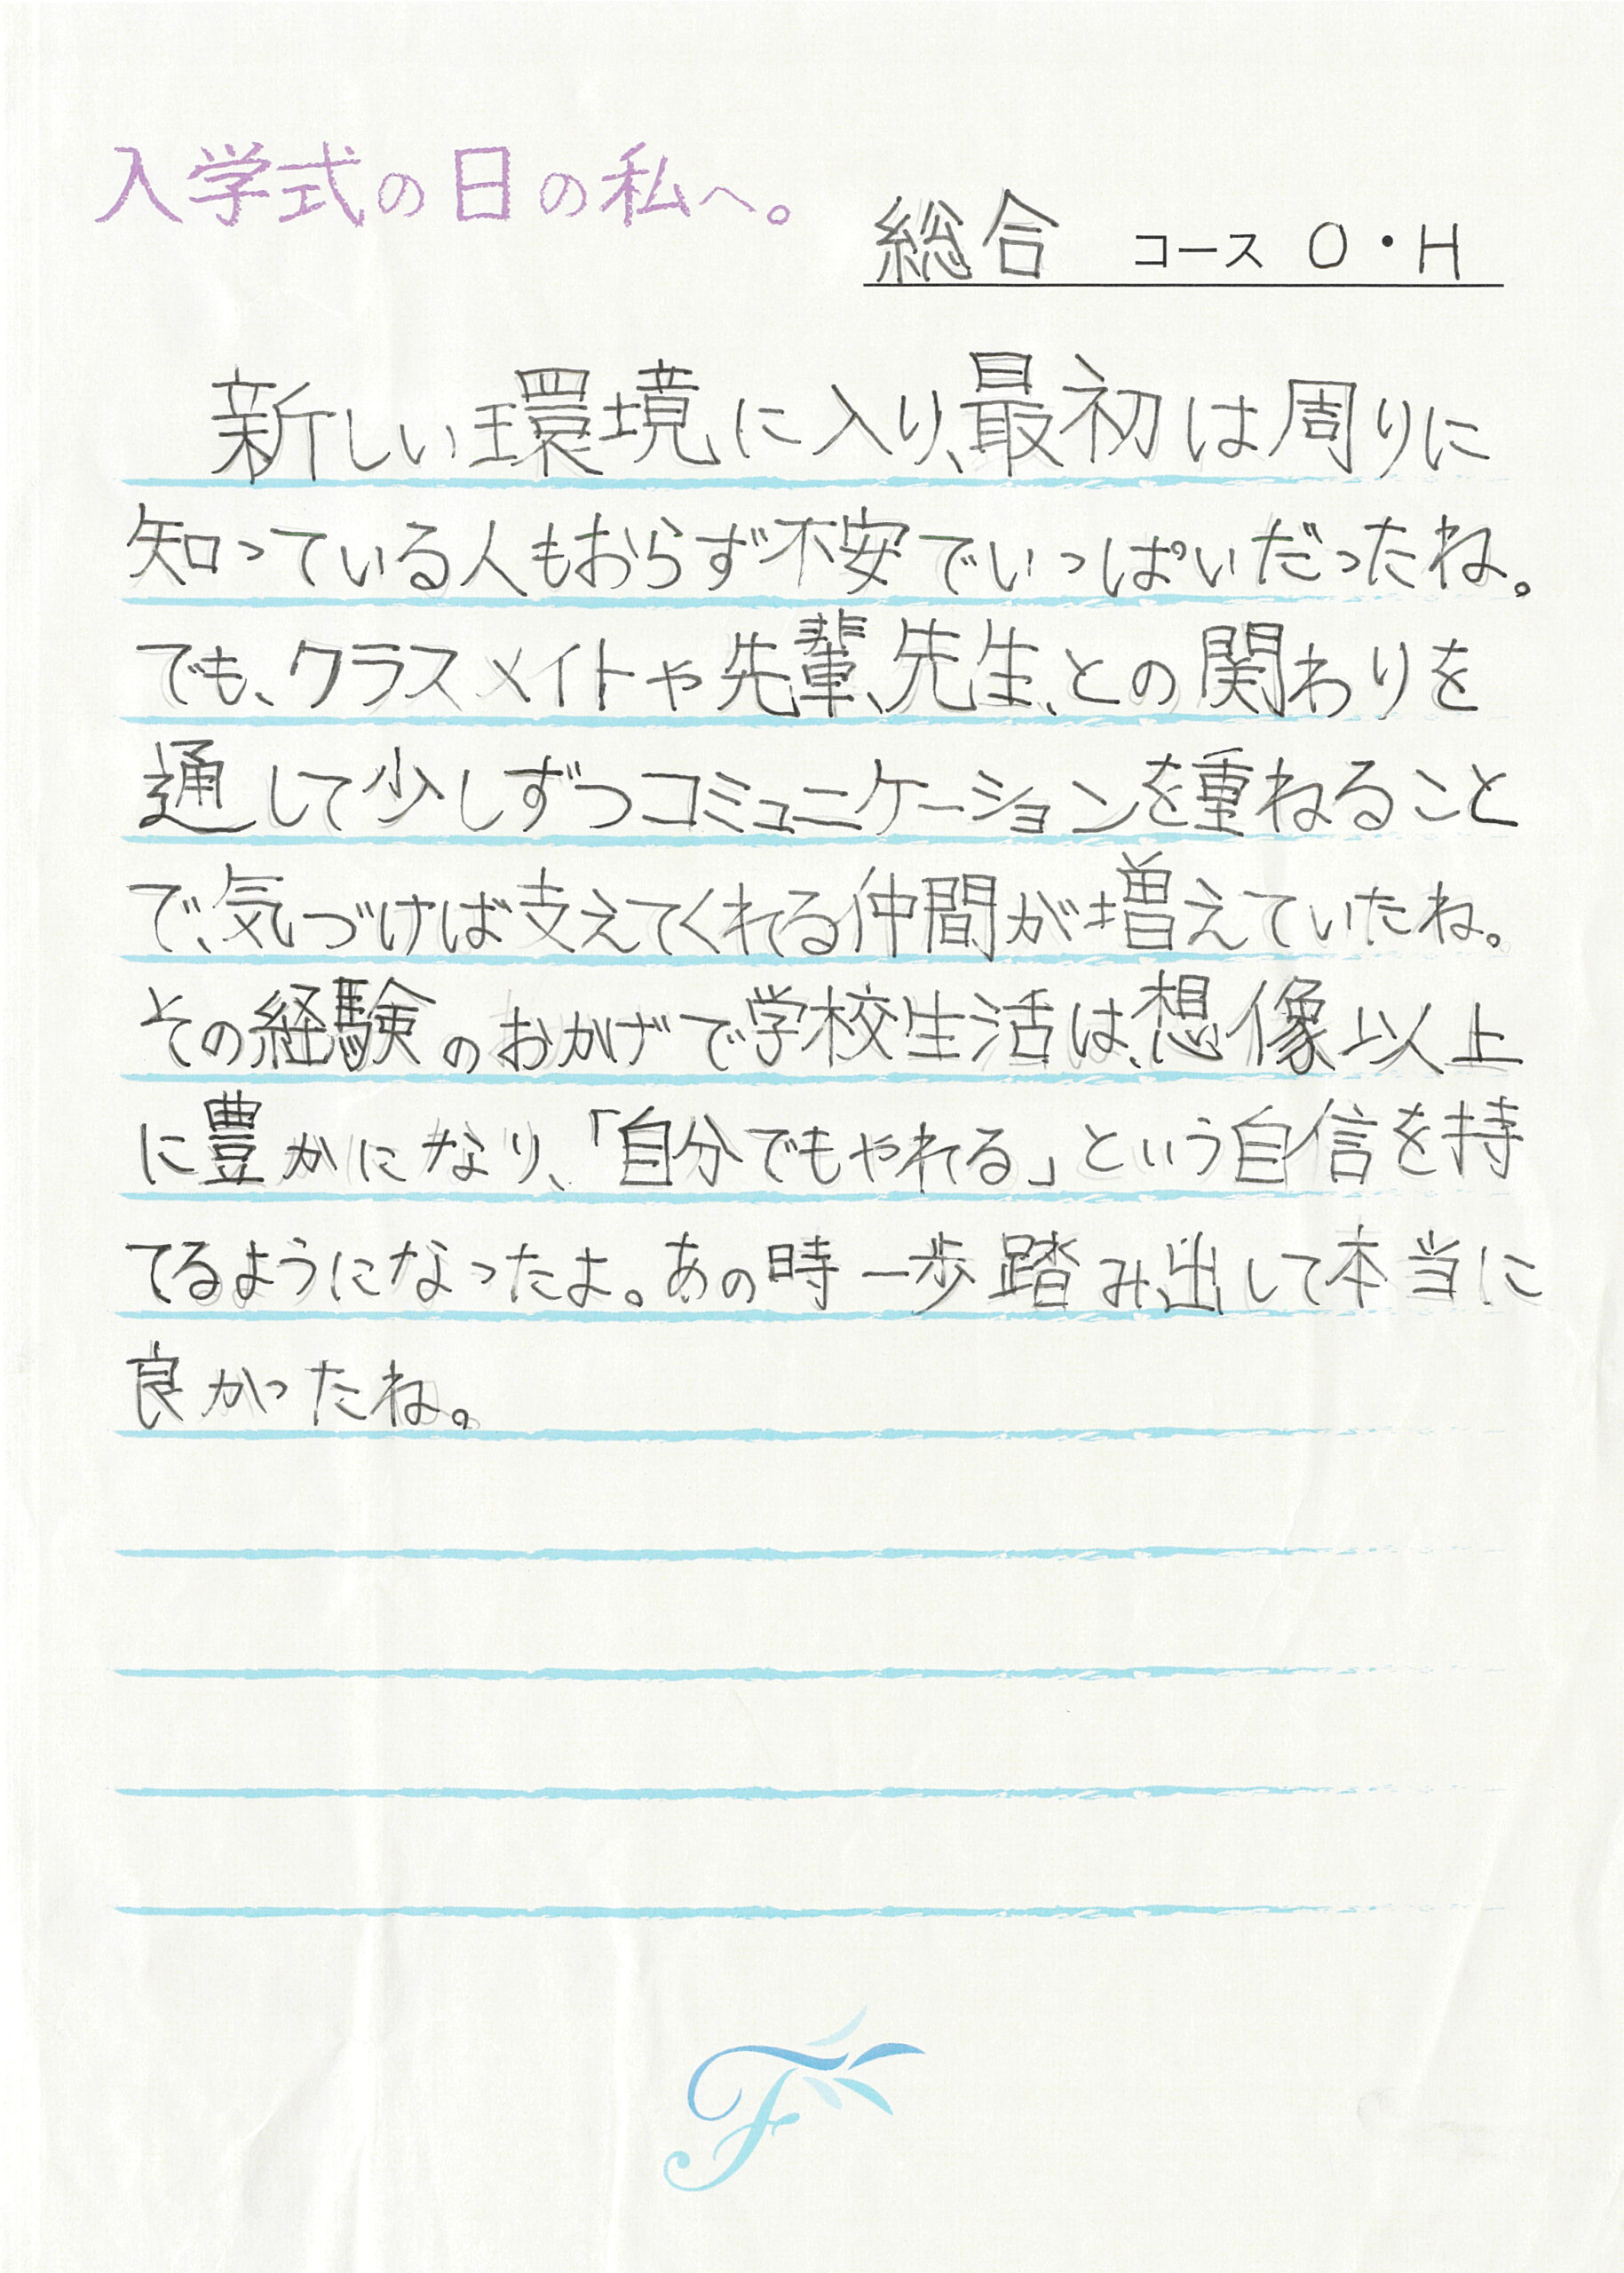 入学式の日の私へ。
総合 コース O・H
新しい環境に入り、最初は周りに
知っている人もおらず不安でいっぱいだったね。
でも、クラスメイトや先輩、先生、との関わりを
通して少しずつコミュニケーションを重ねること
で、気づけば支えてくれる仲間が増えていたね。
その経験のおかげで学校生活は、想像以上
に豊かになり、「自分でもやれる」という自信を持
てるようになったよ。あの時一歩踏み出して本当に
良かったね。
F